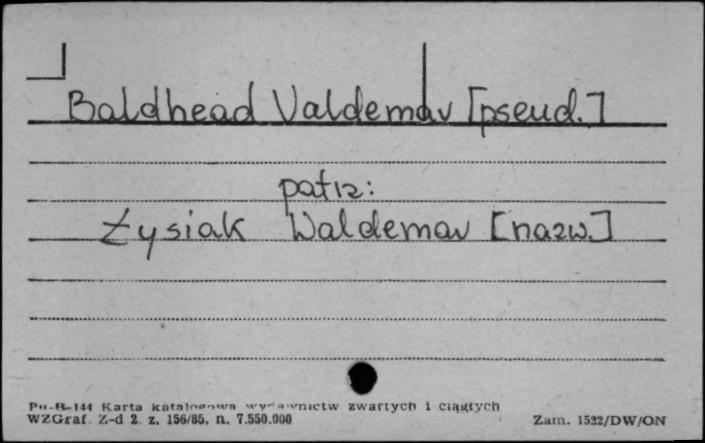 Baldhead Valdemar [pseud.]
patrz:
Łysiak Waldemar [nazw.]
Pu-B-144 Karta katalogowa wydawnictw zwartych i ciągłych
WZGraf. Z-d 2. z. 156/85. n. 7.550.000
Zam. 1522/DW/ON